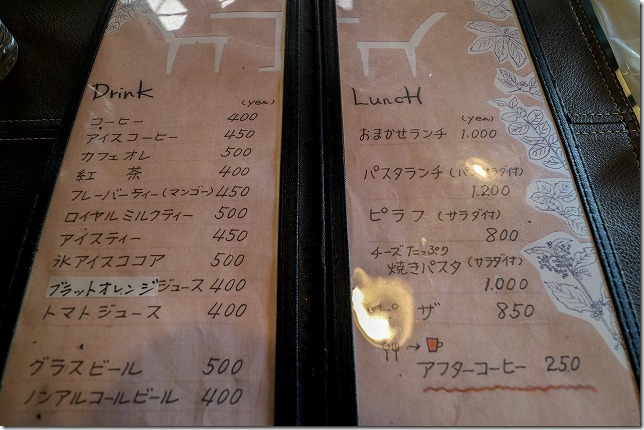 Drink
(yen)
コーヒー 400
アイスコーヒー 450
カフェオレ 500
紅茶 400
フレーバーティー(マンゴー) 450
ロイヤルミルクティー 500
アイスティー 450
氷アイスココア 500
ブラットオレンジジュース 400
トマトジュース 400
グラスビール 500
ノンアルコールビール 400
LuncH
(yen)
おまかせランチ 1.000
パスタランチ(パン サラダ付)
1.200
ピラフ(サラダ付)
800
チーズたっぷり
焼きパスタ(サラダ付)
1.000
ピザ 850
→
アフターコーヒー 250